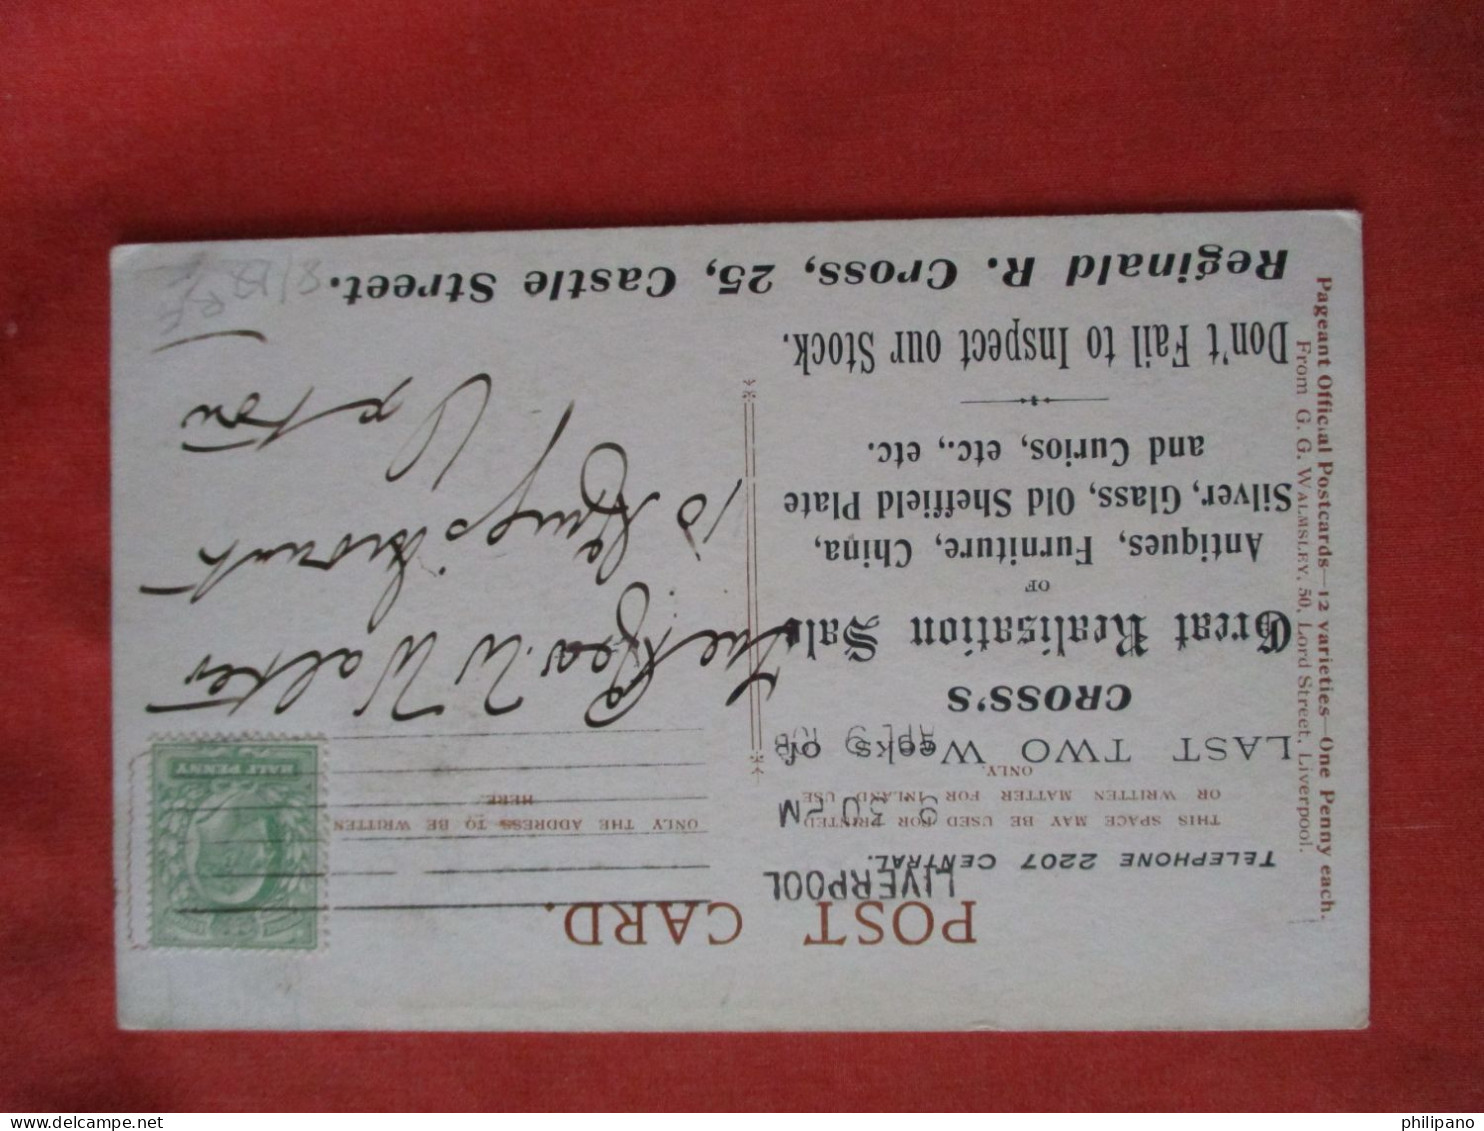 POST CARD.
TELEPHONE 2207 CENTRAL.
LIVERPOOL
THIS SPACE MAY BE USED FOR PRINTED
OR WRITTEN MATTER FOR INLAND USE
ONLY.
9 30 PM
AP 9 08
LAST TWO Weeks of
CROSS'S
Great Realisation Sale
OF
Antiques, Furniture, China,
Silver, Glass, Old Sheffield Plate
and Curios, etc., etc.
Don't Fail to Inspect our Stock.
Reginald R. Cross, 25, Castle Street.
Pageant Official Postcards—12 varieties—One Penny each.
From G. G. WALMSLEY, 50, Lord Street, Liverpool.
ONLY THE ADDRESS TO BE WRITTEN
HERE.
HALF PENNY
The Rev. W Walter
10
Upton
philipano